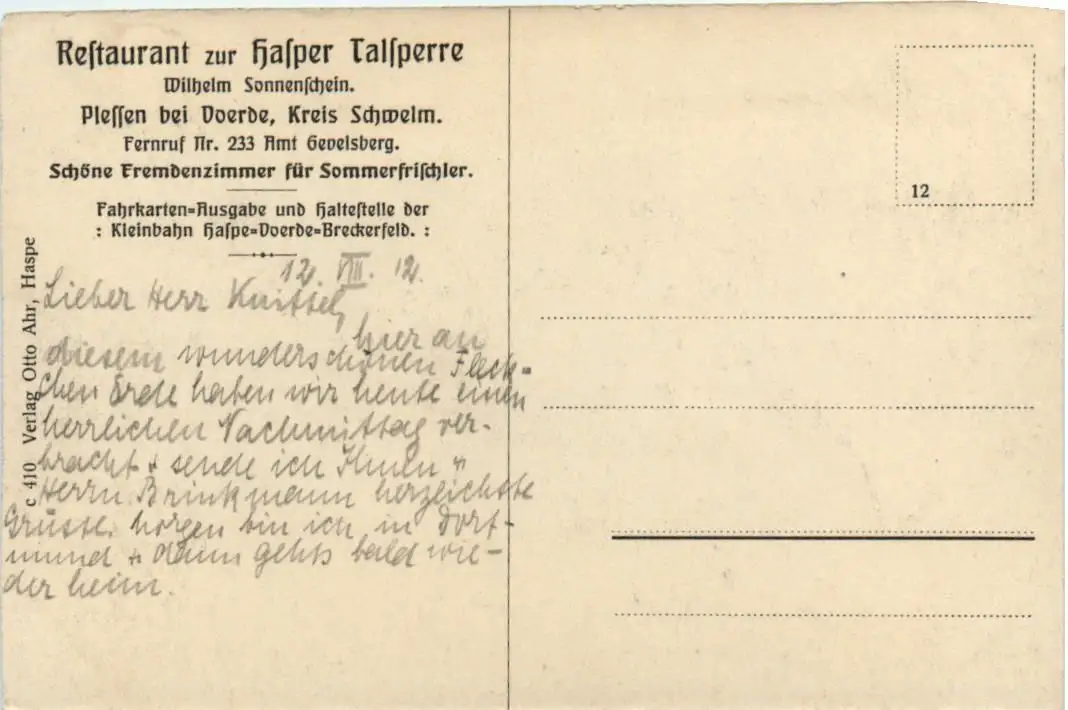 Reſtaurant zur Haſper Talſperre
Wilhelm Sonnenſchein.
Pleſſen bei Voerde, Kreis Schwelm.
Fernruf Nr. 233 Amt Gevelsberg.
Schöne Fremdenzimmer für Sommerfriſchler.
Fahrkarten=Ausgabe und Halteſtelle der
: Kleinbahn Haſpe=Voerde=Breckerfeld. :
12. VIII. 12.
Lieber Herr Knittel,
hier an
diesem wunderschönen Fleck=
chen Erde haben wir heute einen
herrlichen Nachmittag ver-
bracht + sende ich Ihnen u
Herrn Brinkmann herzlichste
Grüsse. Morgen bin ich in Dort-
mund + dann gehts bald wie-
der heim.
c 410 Verlag Otto Ahr, Haspe
12